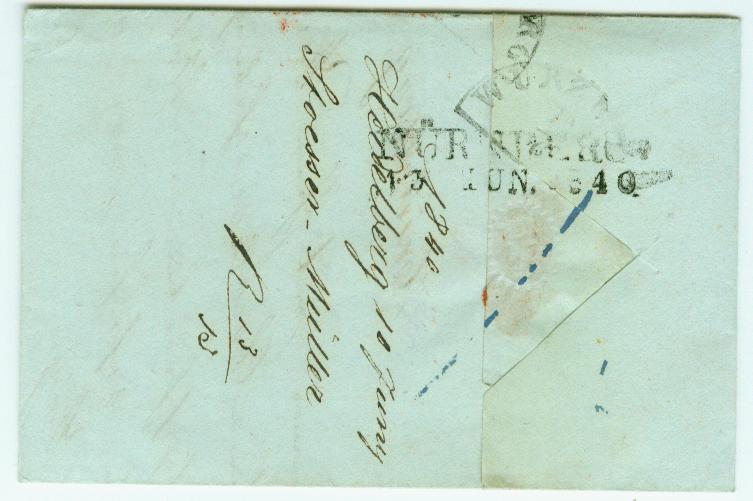 NÜRNBERG
13 IUN. 1840
WÜRZ
1840
Heidelberg 10 Juny
Stoesser-Müller
R 13
15